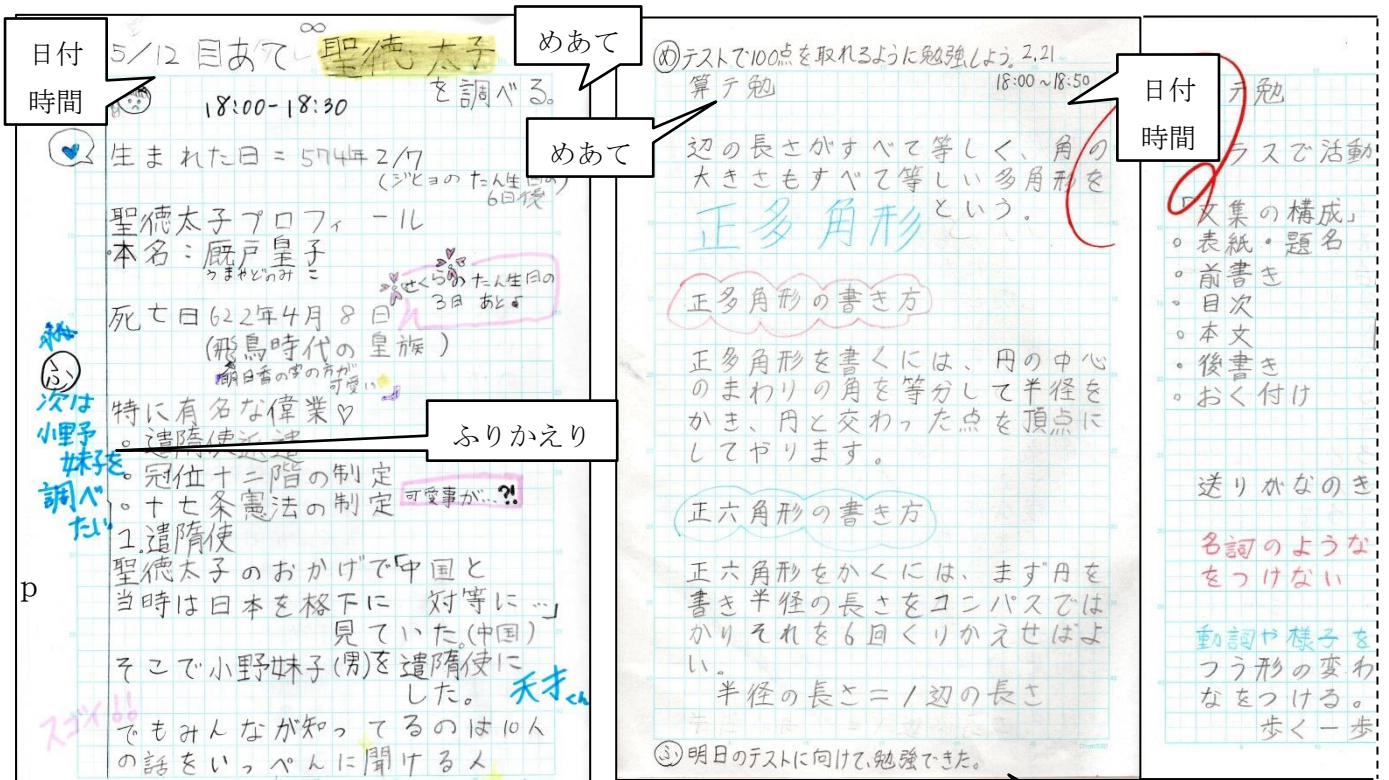 日付
時間
5/12 目あて 聖徳太子
を調べる。
18:00-18:30
めあて
生まれた日=574年2/7
(ジヒョのたん生日の
6日後)
聖徳太子プロフィール
・本名:厩戸皇子
うまやどのみこ
さくらのたん生日の
3日あと
死亡日622年4月8日
(飛鳥時代の皇族)
明日香の字の方が
可愛い
ふ
次は
小野
妹子を
調べ
たい
ふりかえり
特に有名な偉業♡
。遣隋使派遣
。冠位十二階の制定
。十七条憲法の制定
可愛事が...?!
1.遣隋使
聖徳太子のおかげで「中国と
対等に…」
当時は日本を格下に
見ていた。(中国)
p
そこで小野妹子(男)を遣隋使に
した。
天才くん
スゴイ!!
でもみんなが知ってるのは10人
の話をいっぺんに聞ける人
めテストで100点を取れるように勉強しよう。2,21
算テ勉
18:00~18:50
めあて
日付
時間
辺の長さがすべて等しく、角の
大きさもすべて等しい多角形を
正多角形という。
正多角形の書き方
正多角形を書くには、円の中心
のまわりの角を等分して半径を
かき、円と交わった点を頂点に
してやります。
正六角形の書き方
正六角形をかくには、まず円を
書き半径の長さをコンパスでは
かりそれを6回くりかえせばよ
い。
半径の長さ=1辺の長さ
ふ明日のテストに向けて、勉強できた。
テ勉
ラスで活動
「文集の構成」
。表紙・題名
。前書き
。目次
。本文
。後書き
。おく付け
送りがなのき
名詞のような
をつけない
動詞や様子を
つう形の変わ
なをつける。
歩く一歩